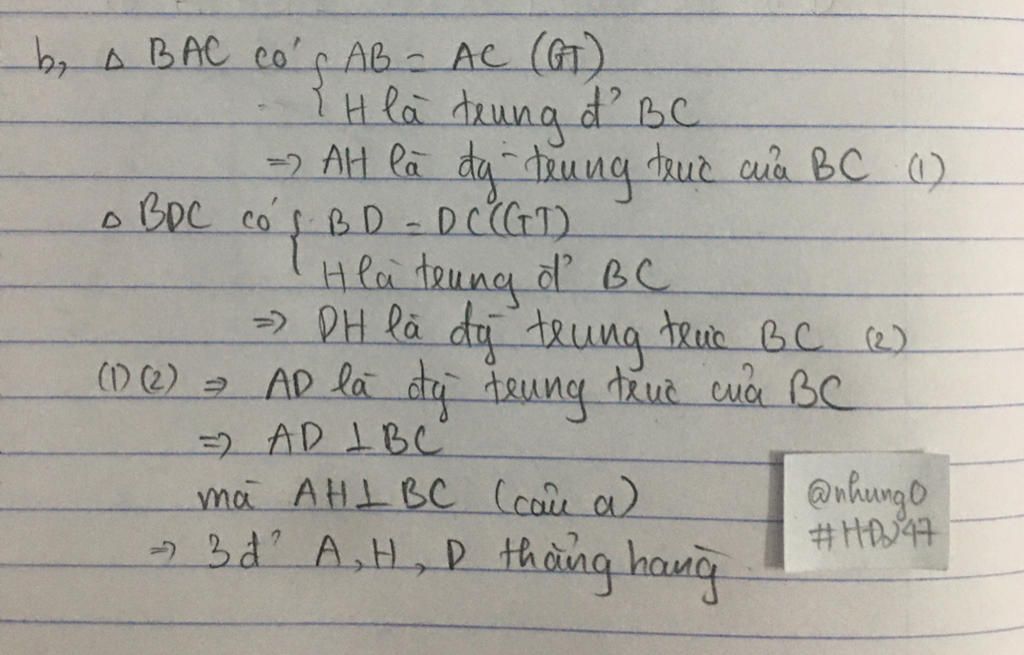 b, △ BAC có { AB = AC (GT)
H là trung đ' BC
=> AH là đg trung trực của BC (1)
△ BDC có { BD = DC (GT)
H là trung đ' BC
=> DH là đg trung trực BC (2)
(1) (2) => AD là đg trung trực của BC
=> AD ⊥ BC
mà AH ⊥ BC (câu a)
=> 3 đ' A, H, D thẳng hàng
@nhung0
#HDJ247